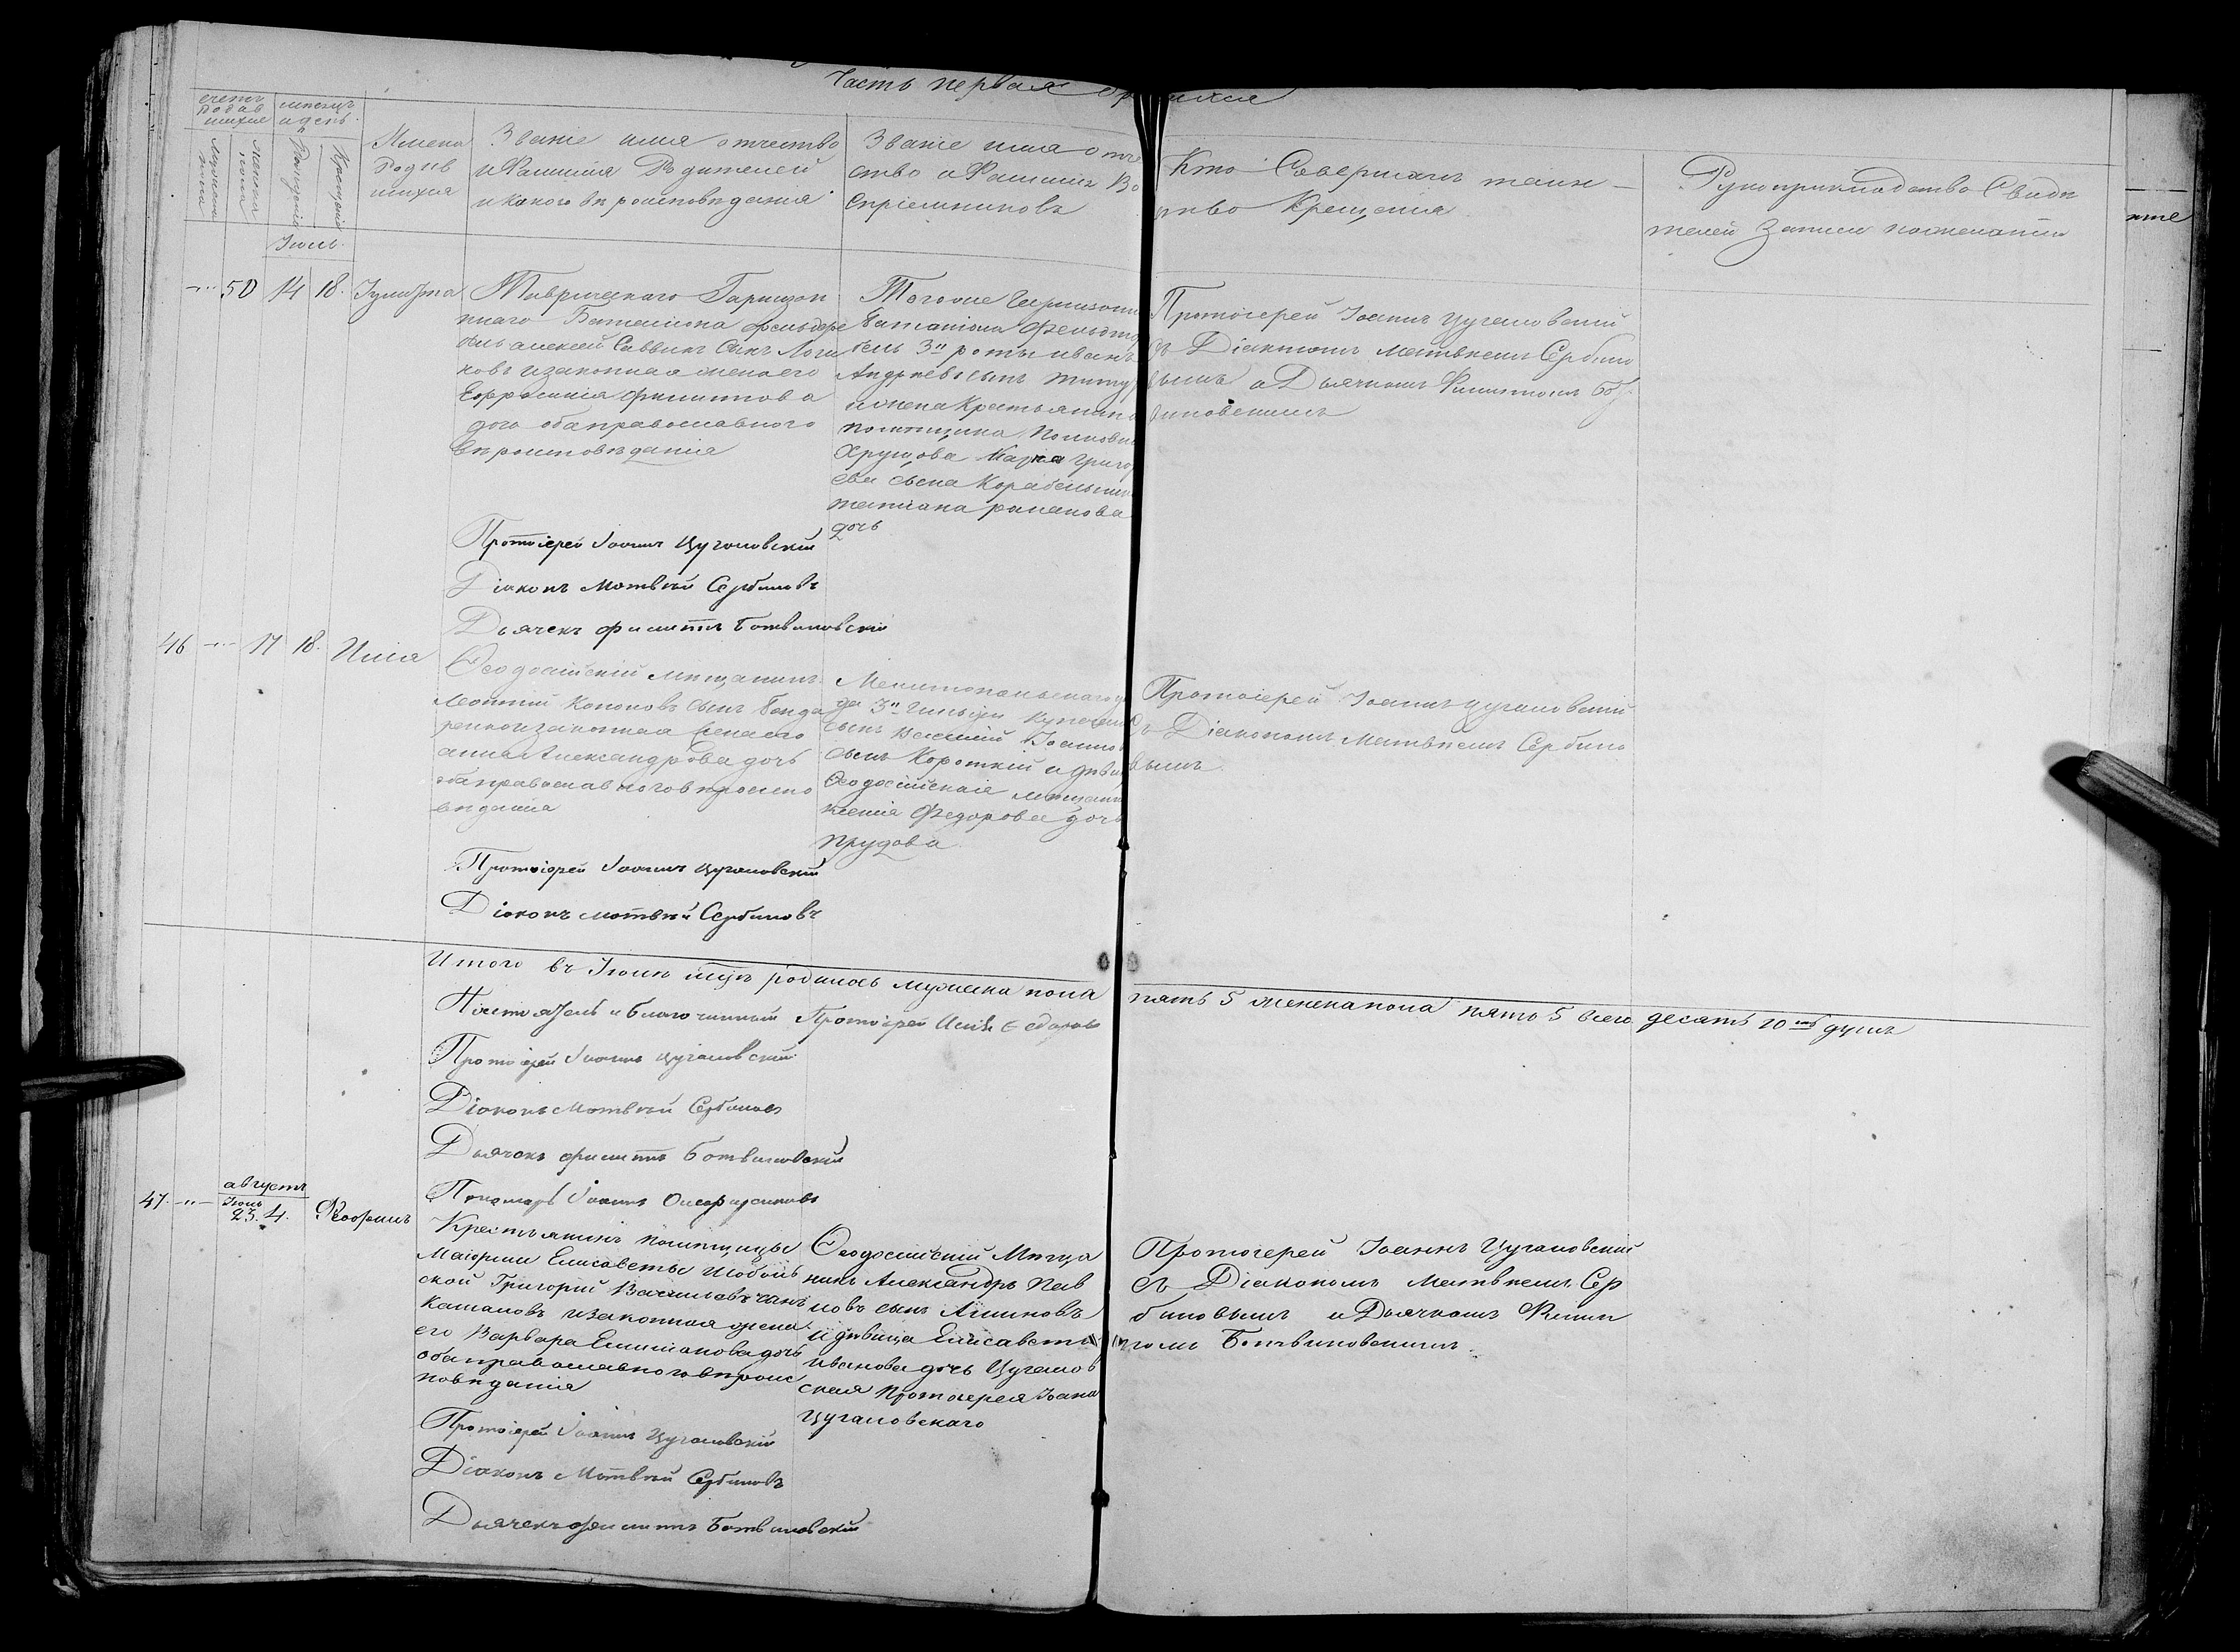 Часть первая
счетъ
родив
шихся
мѣсяцъ
и день
Имена
Родив
шихся
Званіе имя отчество
и Фамилія Родителей
и какого вѣроисповѣданія
Званіе имя отче
ство и Фамилія Во
спріемниковъ
Кто Совершалъ таин
ство Крещенія
Рукоприкладство Свидѣ
телей записи по желанію
Мужеска
пола
Женска
пола
Рожденія
Крещенія
Іюль
50 14 18. Іулитта
Таврическаго Гарнизон
наго Баталіона фельдфе
бель Алексей Саввинъ Сынъ Логи
новъ и законная жена его
Ефросинія Филиппова
дочь оба православного
вѣроисповѣданія
Тогоже Гарнизонн
баталіона Фельдфе
бель 3й роты Иванъ
Андреевъ сынъ
и жена Крестьянина
помѣщика Полковни
Хрущова Григор
ева сына Корабельник
татіана романова
дочь
Протоіерей Іоаннъ Цугаловскій
съ Діакономъ Матвѣемъ Сербино
вымъ и Дьячкомъ Филиппомъ Бот
виновскимъ
Протоіерей Іоаннъ Цугаловскій
Діаконъ Матвѣй Сербиновъ
Дьячекъ Филиппъ Ботвиновскій
46 17 18. Илія
Ѳеодосійскій мѣщанинъ
Леонтій Кононовъ сынъ Бонда
ренко и законная жена его
Анна Александрова дочь
оба православного вѣроиспо
вѣданія
Мелитопольскаго
3й Гильдіи Купече
сынъ Василій Іоаннов
сынъ Короткій и дѣви
Ѳеодосійская мѣщанк
ксенія Федорова дочь
Прудова
Протоіерей Іоаннъ Цугаловскій
съ Діакономъ Матвѣемъ Сербино
вымъ
Протоіерей Іоаннъ Цугаловскій
Діаконъ Матвѣй Сербиновъ
Итого въ Іюлѣ мцѣ родилось мужеска пола пять 5 женска пола пять 5 всего десять 10ть душъ
Настоятель и благочинный Протоіерей
Протоіерей Іоаннъ Цугаловскій
Діаконъ Матвѣй Сербиновъ
Дьячекъ Филиппъ Ботвиновскій
Пономарь Іоаннъ
августъ
Іюль
47. 23. 4.
Крестьянинъ помѣщицы
Маіорши Елисаветы
ской Григорий Васильевъ сынъ
Кашановъ и законная жена
его Варвара Емиліанова дочь
оба православного вѣроис
повѣданія
Ѳеодосійскій Мѣща
нинъ Александръ Пав
ловъ сынъ Аминовъ
и дѣвица Елисавета
Иванова дочь Цугалов
ская Протоіерея Іоана
Цугаловскаго
Протоіерей Іоаннъ Цугаловскій
съ Діакономъ Матвѣемъ Сер
биновымъ и Дьячкомъ Филип
помъ Ботвиновскимъ.
Протоіерей Іоаннъ Цугаловскій
Діаконъ Матвѣй Сербиновъ
Дьячекъ Филиппъ Ботвиновскій